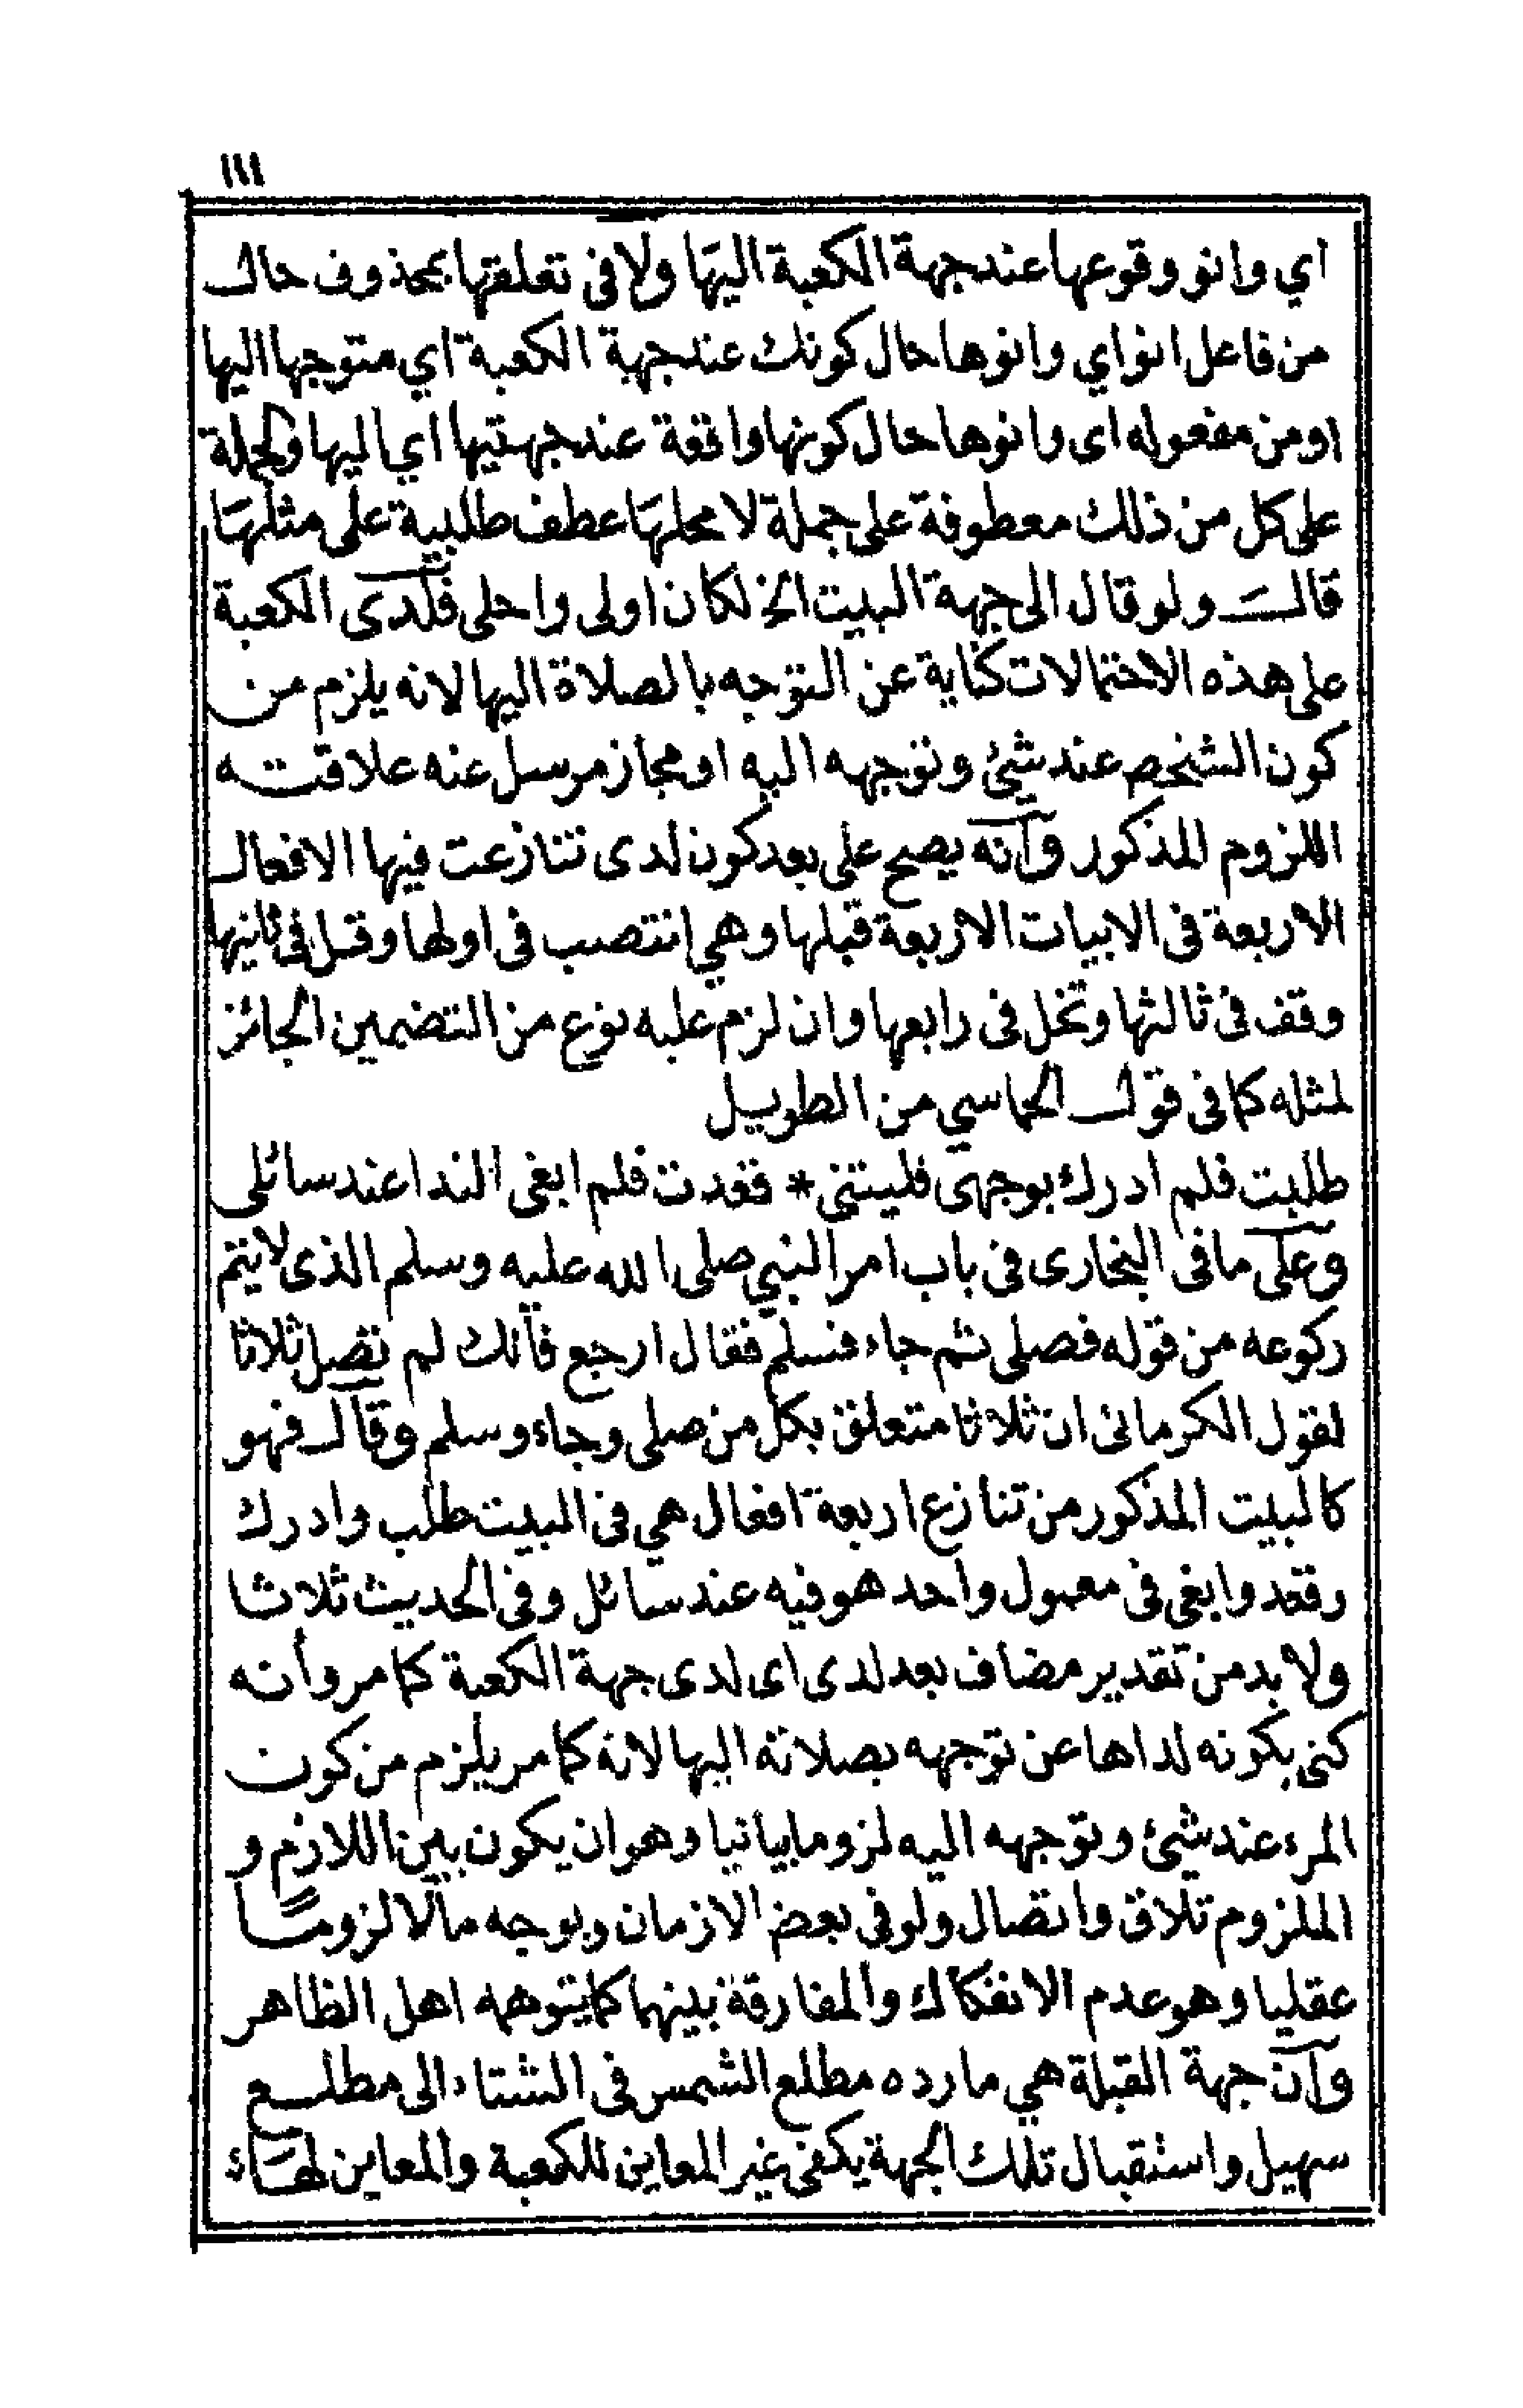 ١١١
اي وانو وقوعها عند جهة الكعبة اليها ولا في تعلقها بمحذوف حال
من فاعل انو اي وانوها حال كونك عند جهة الكعبة اي متوجها اليها
او من مفعوله اى وانوها حال كونها واقعة عند جهتيها اي اليها والجملة
على كل من ذلك معطوفة على جملة لا محلها عطف طلبية على مثلها
قال ولو قال الى جهة البيت الخ لكان اولى واحلى فلدى الكعبة
على هذه الاحتمالات كناية عن التوجه بالصلاة اليها لانه يلزم من
كون الشخص عند شيئ وتوجهه اليه او مجاز مرسل عنه علاقته
اللزوم المذكور وآنه يصح على بعد كون لدى تنازعت فيها الافعال
الاربعة في الابيات الاربعة قبلها وهي انتصب في اولها وقل في ثانيها
وقف في ثالثها وتخل في رابعها وان لزم عليه نوع من التضمين الجائز
لمثله كما في قول الحماسي من الطويل
طلبت فلم ادرك بوجهى فليتنى * فقدت فلم ابغى الندا عند سائلى
وعلى ما في البخارى في باب امر النبي صلى الله عليه وسلم الذى لا يتم
ركوعه من قوله فصلى ثم جاء فسلم فقال ارجع فأنك لم تصل ثلاثا
لقول الكرمانى ان ثلاثا متعلق بكل من صلى وجاء وسلم وقال فهو
كالبيت المذكور من تنازع اربعة افعال هي في البيت طلب وادرك
رفقد وابغى في معمول واحد هو فيه عند سائل وفي الحديث ثلاثا
ولا بد من تقدير مضاف بعد لدى اى لدى جهة الكعبة كما مر وأنه
كنى بكونه لداها عن توجهه بصلاته اليها لانه كما مر يلزم من كون
المرء عند شيئ وتوجهه اليه لزوما بيانيا وهو ان يكون بين اللازم و
الملزوم تلاق واتصال ولو في بعض الازمان وبوجه ما لا لزومًا
عقليا وهو عدم الانفكاك والمفارقة بينهما كما يتوهمه اهل الظاهر
وآن جهة القبلة هي ما رده مطلع الشمس في الشتاء الى مطلع
سهيل واستقبال تلك الجهة يكفى غير المعاين للكعبة والمعاين لها